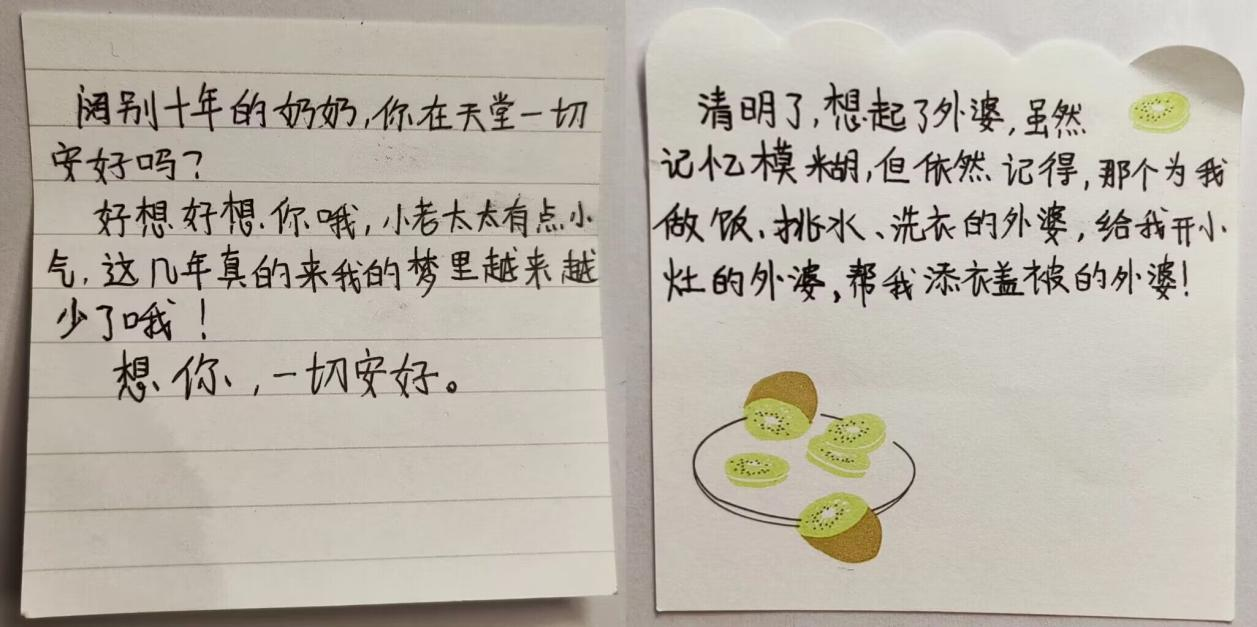 阔别十年的奶奶,你在天堂一切
安好吗?
好想好想你哦,小老太太有点小
气,这几年真的来我的梦里越来越
少了哦!
想你,一切安好。
清明了,想起了外婆,虽然
记忆模糊,但依然记得,那个为我
做饭、挑水、洗衣的外婆,给我开小
灶的外婆,帮我添衣盖被的外婆!